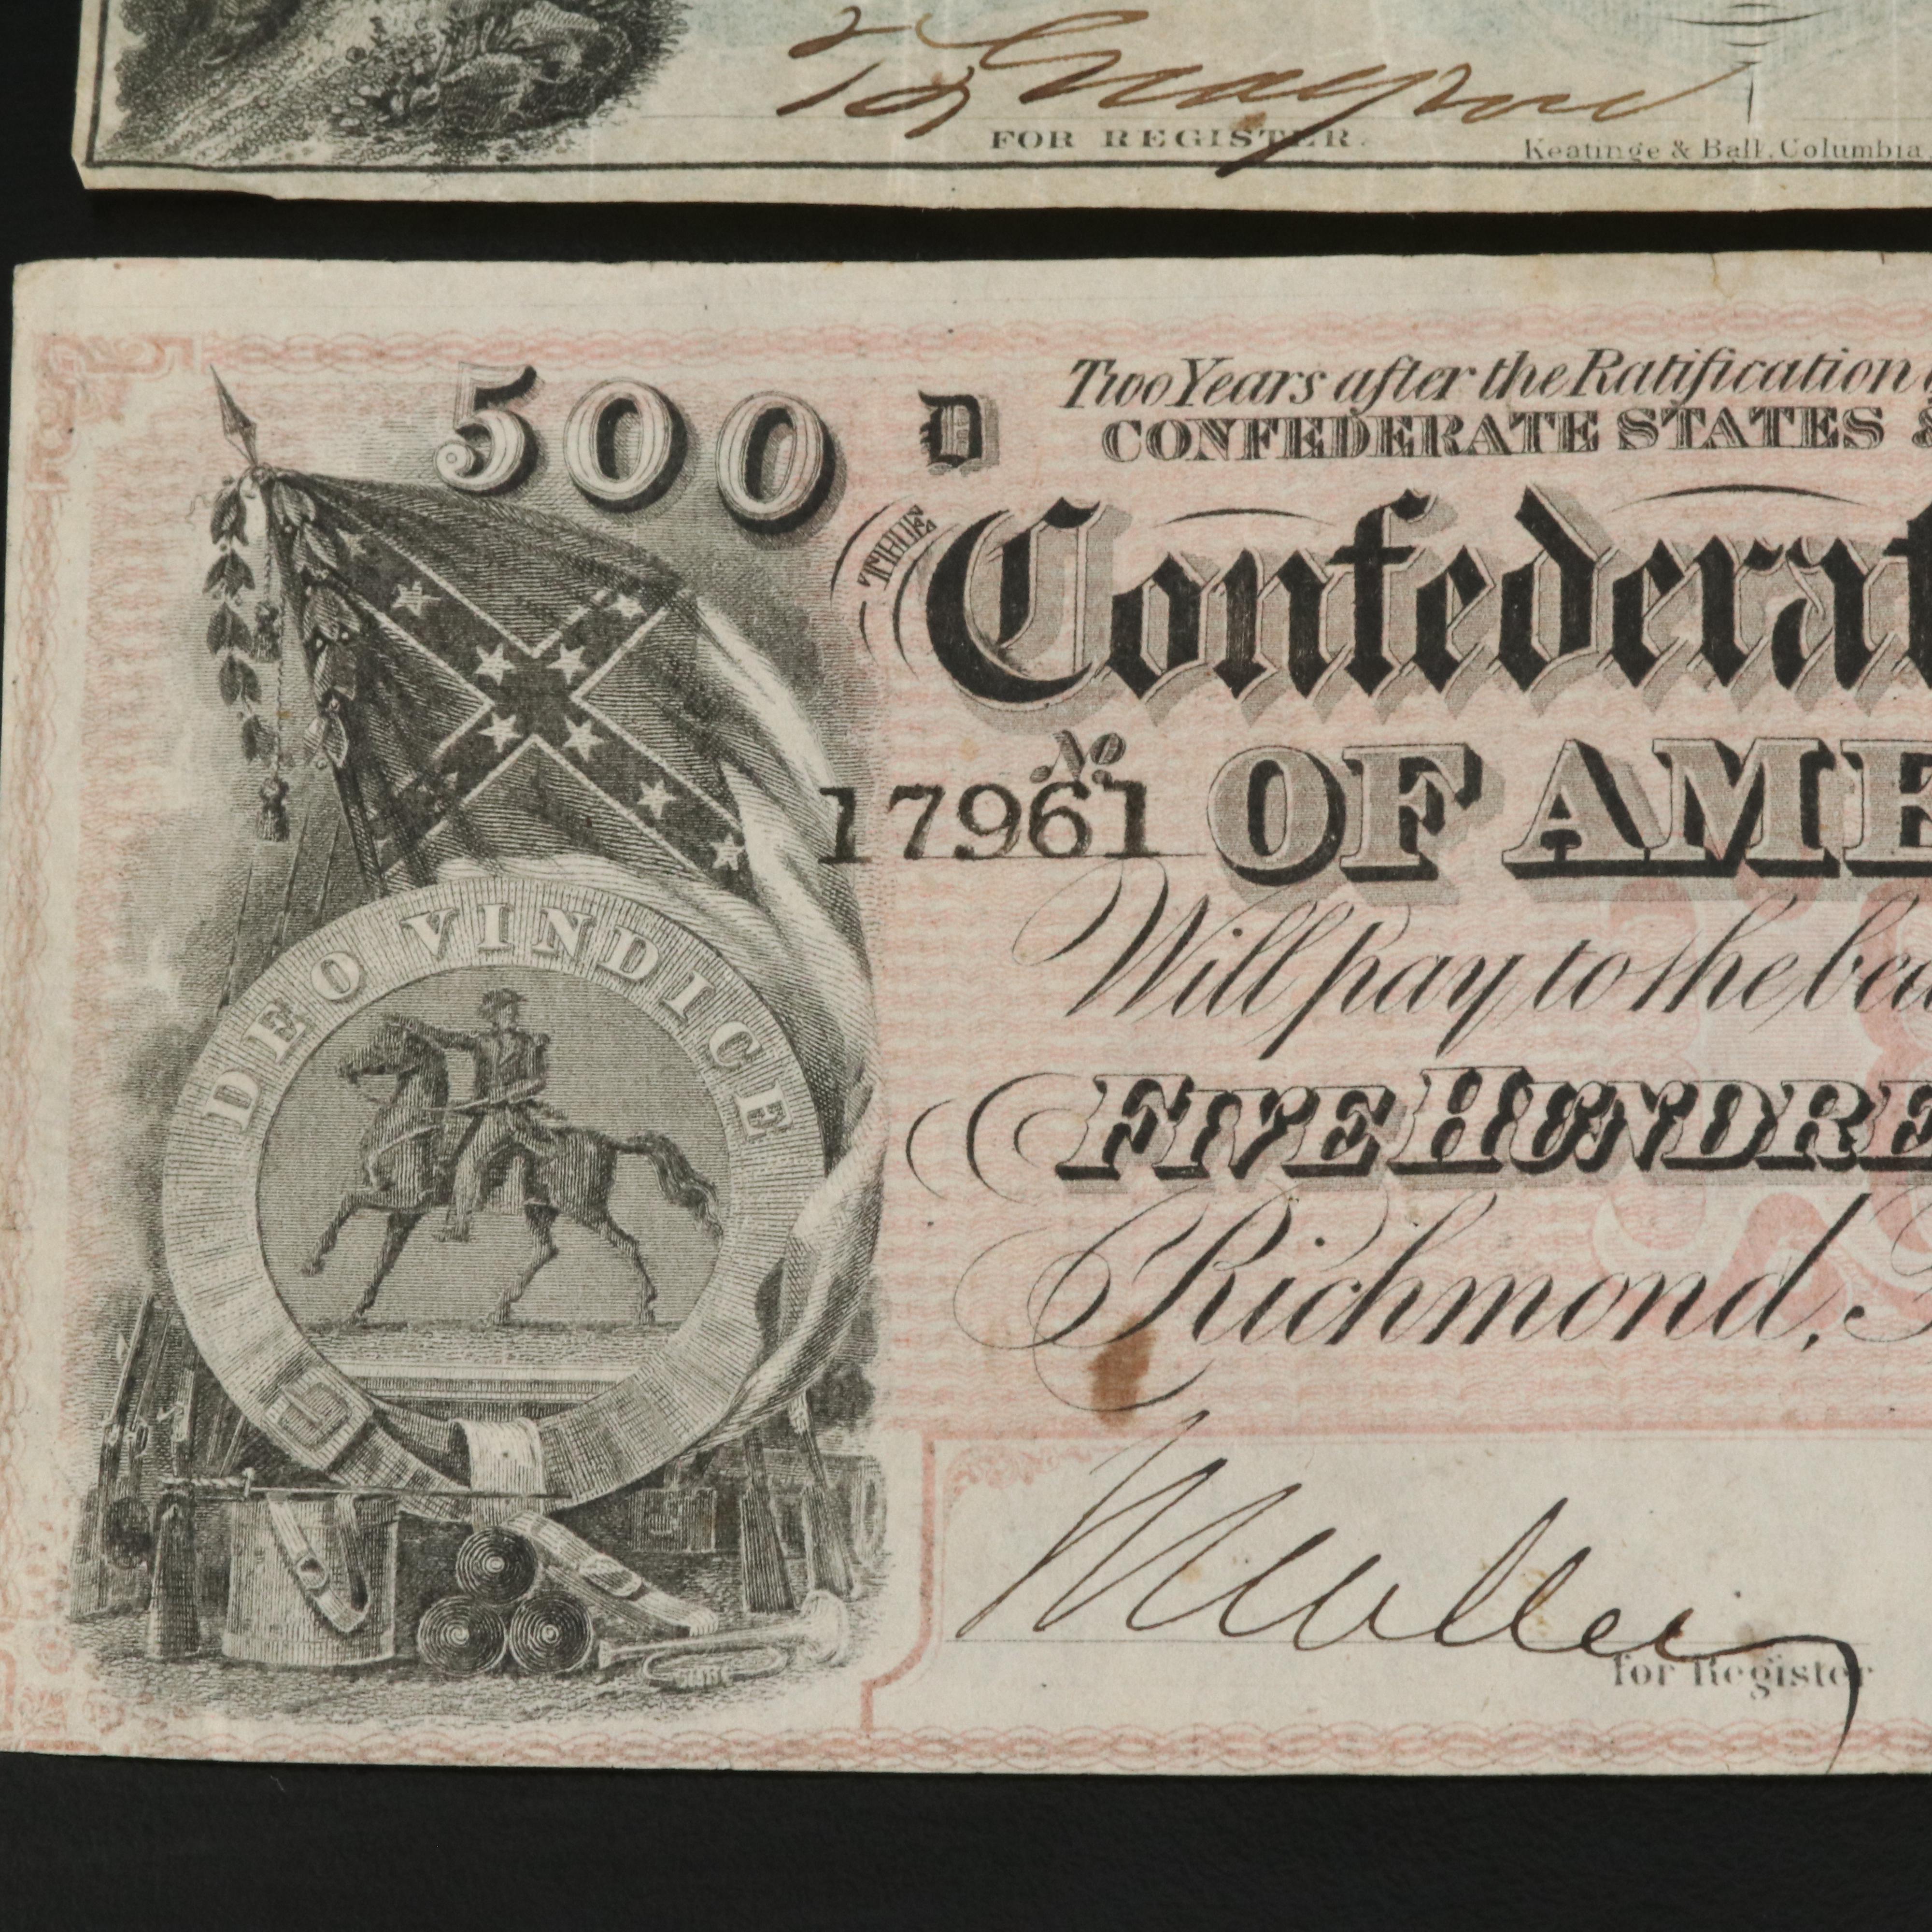 FOR REGISTER.
Keatinge & Ball, Columbia,
500 D
Two Years after the Ratification
CONFEDERATE STATES &
THE
Confederat
No
17961
OF AME
Will pay to the bea
DEO VINDICE
FIVE HUNDRE
Richmond,
for Register